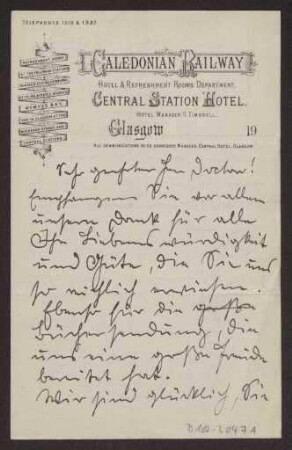 TELEPHONES 1518 & 1937.
CALEDONIAN RAILWAY
HOTEL & REFRESHMENT ROOMS DEPARTMENT.
CENTRAL STATION HOTEL.
HOTEL MANAGER
Glasgow 19
ALL COMMUNICATIONS TO BE ADDRESSED MANAGER, CENTRAL HOTEL, GLASGOW
Sehr geehrter Herr Doctor!
Empfangen Sie vor allem
unsern Dank für alle
Ihre Liebenswürdigkeit
und Güte, die Sie uns
so reichlich erwiesen.
Ebenso für die große
Büchersendung, die
uns eine große Freude
bereitet hat.
Wir sind glücklich, Sie